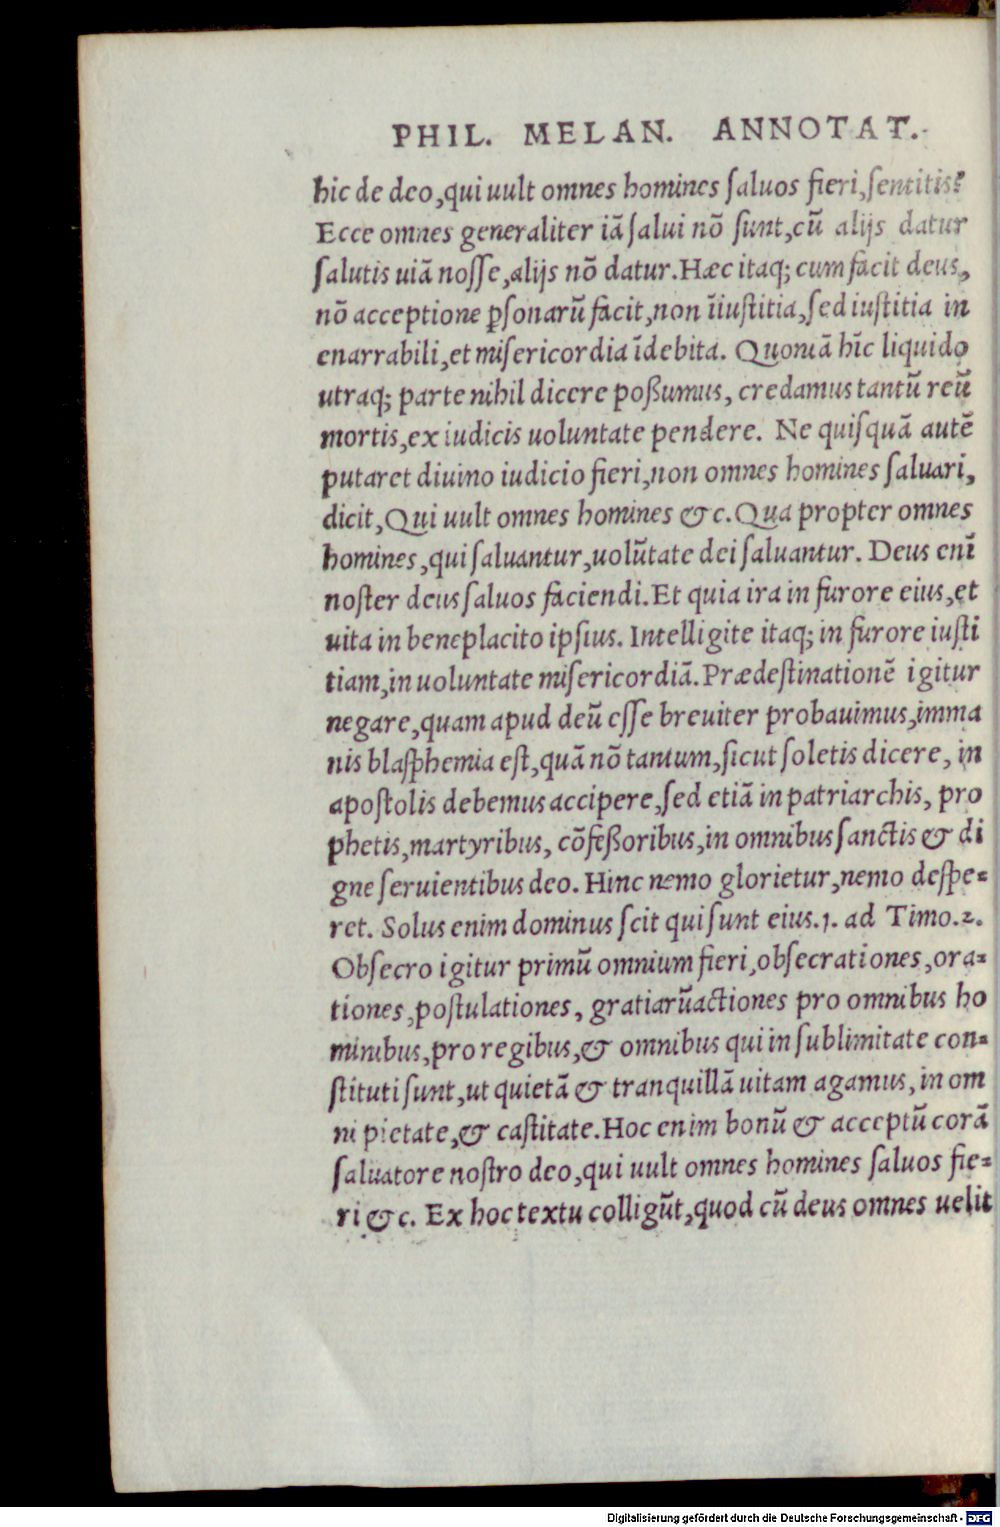 PHIL. MELAN. ANNOTAT.
hic de deo,qui uult omnes homines ſaluos fieri,ſentitis?
Ecce omnes generaliter iã ſalui nõ ſunt,cũ alijs datur
ſalutis uiã noſſe,alijs nõ datur.Hæc itaq; cum facit deus,
nõ acceptione ꝑſonarũ facit,non ĩiuſtitia,ſed iuſtitia in
enarrabili,et miſericordia ĩdebita. Quoniã hĩc liquido
utraq; parte nihil dicere poßumus, credamus tantũ reũ
mortis,ex iudicis uoluntate pendere. Ne quiſquã autẽ
putaret diuino iudicio fieri,non omnes homines ſaluari,
dicit,Qui uult omnes homines &c.Qua propter omnes
homines,qui ſaluantur,uolũtate dei ſaluantur. Deus enĩ
noſter deus ſaluos faciendi.Et quia ira in furore eius,et
uita in beneplacito ipſius. Intelligite itaq; in furore iuſti
tiam,in uoluntate miſericordiã.Prædeſtinationẽ igitur
negare,quam apud deũ eſſe breuiter probauimus,imma
nis blaſphemia eſt,quã nõ tantum,ſicut ſoletis dicere, in
apoſtolis debemus accipere,ſed etiã in patriarchis, pro
phetis,martyribus, cõfeßoribus,in omnibus ſanctis & di
gne ſeruientibus deo. Hinc nemo glorietur,nemo deſpe=
ret. Solus enim dominus ſcit qui ſunt eius.1. ad Timo.2.
Obſecro igitur primũ omnium fieri,obſecrationes,ora=
tiones,poſtulationes, gratiarũactiones pro omnibus ho
minibus,pro regibus,& omnibus qui in ſublimitate con=
ſtituti ſunt,ut quietã & tranquillã uitam agamus,in om
ni pietate,& caſtitate.Hoc enim bonũ & acceptũ corã
ſaluatore noſtro deo,qui uult omnes homines ſaluos fie=
ri &c. Ex hoc textu colligũt,quod cũ deus omnes uelit
Digitalisierung gefördert durch die Deutsche Forschungsgemeinschaft - DFG